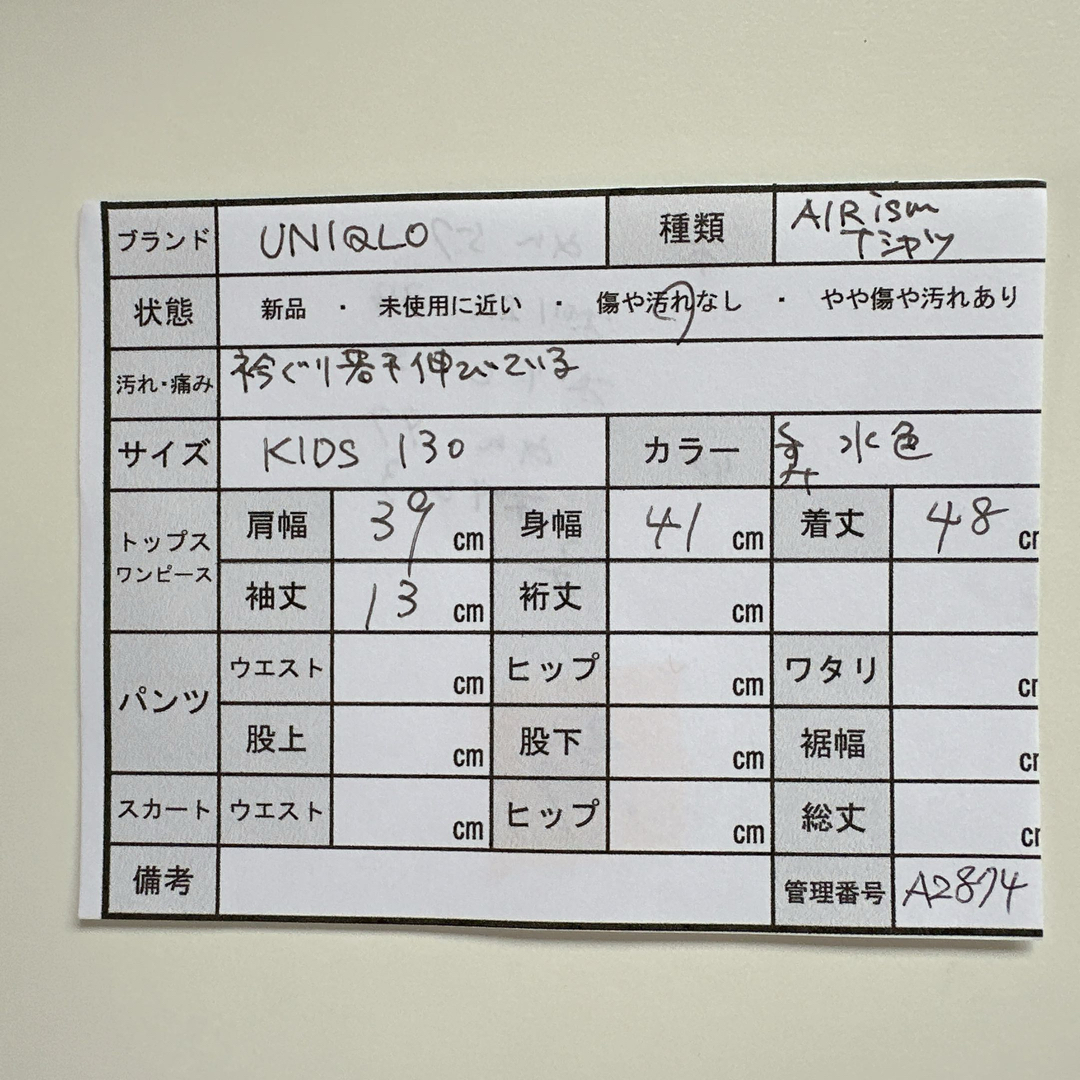 ブランド UNIQLO 種類 AIRism
Tシャツ
状態 新品 ・ 未使用に近い ・ 傷や汚れなし ・ やや傷や汚れあり
汚れ・痛み 衿ぐり若干伸びている
サイズ KIDS 130 カラー くすみ 水色
トップス
ワンピース
肩幅 39 cm 身幅 41 cm 着丈 48 cm
袖丈 13 cm 裄丈 cm
パンツ
ウエスト cm ヒップ cm ワタリ cm
股上 cm 股下 cm 裾幅 cm
スカート ウエスト cm ヒップ cm 総丈 cm
備考 管理番号 A2874